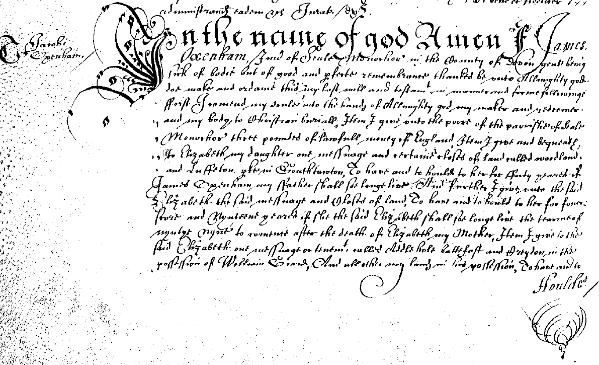 In the name of god Amen I James
Oxenham, of Zeale Monorhor in the County of Devon gent being
sick of bodie but of good and perfecte remembrance thankes be unto Allmighty god
doe make and ordaine this my last will and testamt in manner and forme followinge
ffirst I comend my soule into the hands of Allmighty god, my maker and redeemer
and my body to Christian buriall, Item I give unto the poore of the parishe of Zeale
Monorhor three poundes of lawfull money of England Item I give and bequeath
to Elizabeth my daughter one messuage and certaine closes of land called woodland
and in Southtawton, To have and to hould to her for fforty yeares if
James Oxenham my ffather shall soe longe live, And further I give unto the said
Elizabeth the said messuage and closes of land, To have and to hould to her for foure
score and Nyneteene yeares if she the said Elizabeth shall soe longe live the terme of
nyntye nyne to comence after the death of Elizabeth my Mother, Item I give to the
said Elizabeth one messuage or tenemt called and in the
possession of William And all other my lands in his possession, To have and to
Hould
James
Oxenham,